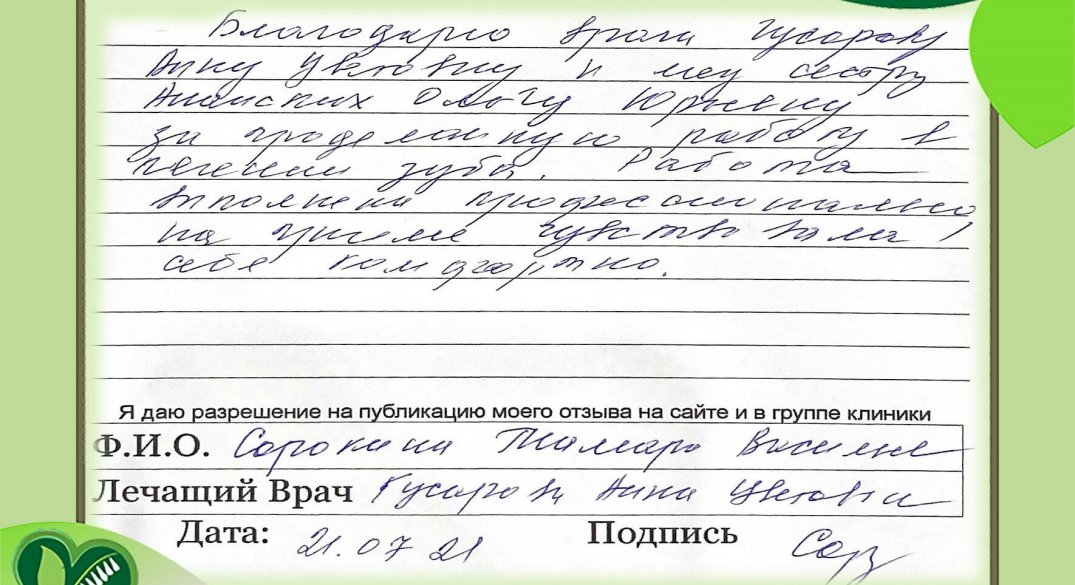 Благодарю врача Гусарову
Анну Цветовну и мед сестру
Ольгу Юрьевну
за проделанную работу в
лечении зуба. Работа
выполнена профессионально
на приеме чувствовала
себя комфортно.
Я даю разрешение на публикацию моего отзыва на сайте и в группе клиники
Ф.И.О. Сорокина Тамара
Лечащий Врач Гусарова Анна
Дата: 21.07.21 Подпись